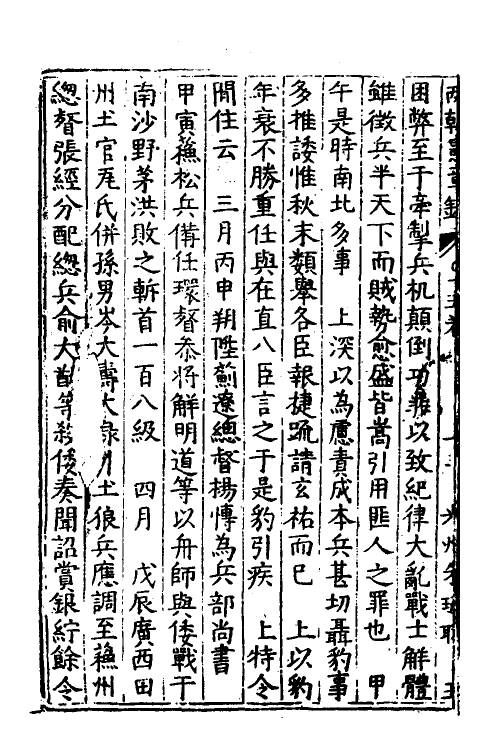 兩朝憲章錄
困弊至于牽掣兵机顛倒功罪以致紀律大亂戰士解體
雖徵兵半天下而賊勢愈盛皆嵩引用匪人之罪也　甲
午是時南北多事　上深以為慮責成本兵甚切聶豹事
多推諉惟秋末類舉各臣報捷疏請玄祐而已　上以豹
年衰不勝重任與在直八臣言之于是豹引疾　上特令
閒住云　三月丙申朔陞薊遼總督楊慱為兵部尚書
甲寅蘓松兵備任環督叅將解明道等以舟師與倭戰于
南沙野茅洪敗之斬首一百八級　四月　戊辰廣西田
州土官瓦氏併孫男岑大壽大祿引土狼兵應調至蘓州
總督張經分配總兵俞大猷等殺倭奏聞詔賞銀紵餘令